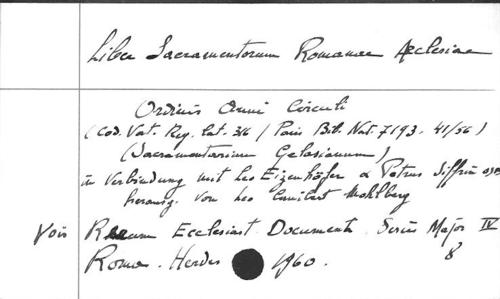 Liber Sacramentorum Romanae Aeclesiae
Ordinis Anni Circuli
(Cod. Vat. Reg. lat. 316 / Paris Bib. Nat. 7193. 41/56)
(Sacramentarium Gelasianum)
in Verbindung mit Leo Eizenhöfer & Petrus Siffrin
herausg. von Leo Cunibert Mohlberg
Voir Rerum Ecclesiast. Documenta. Series Major IV
Roma. Herder 1960. 8